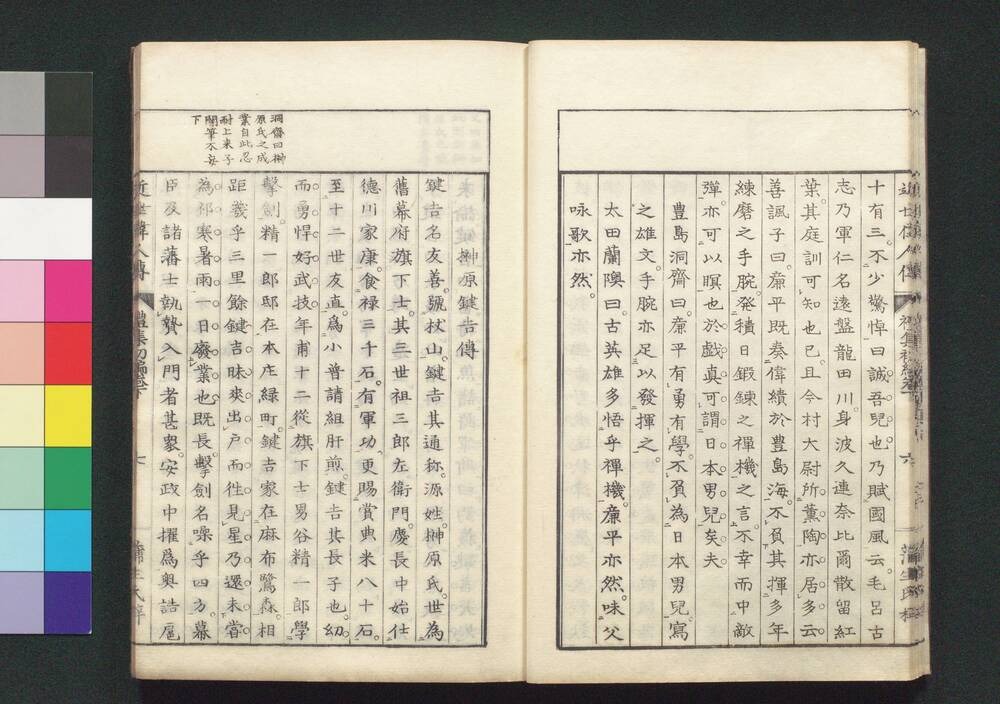 十有三。不少驚悼曰誠吾兒也乃賦國風云。毛呂古
志乃軍仁名遠盤龍田川身波久連奈比爾散留紅
葉。其庭訓可知也已。且今村大尉所薫陶亦居多云
善諷子曰。廉平既奏偉績於豊島海。不負其揮多年
練磨之手腕。發積日鍛錬之禪機之言。不幸而中敵
彈。亦可以瞑也。於戲真可謂日本男兒矣夫。
豊島洞齋曰。廉平有勇有學。不負為日本男兒。寫
之雄文。手腕亦足以發揮之。
太田蘭陵曰。古英雄多悟乎禪機。廉平亦然。味父
咏歌亦然。
洞齋曰榊
原氏之成
業自此忍
耐上来子
閣筆不安
下
榊原鍵吉傳
鍵吉名友善。號杖山。鍵吉其通称。源姓。榊原氏。世為
舊幕府旗下士。其三世祖三郎左衛門。慶長中始仕
德川家康。食禄三千石。有軍功。更賜賞典米八十石。
至十二世友直。爲小普請組肝煎。鍵吉其長子也。幼
而勇悍好武技。年甫十二從旗下士男谷精一郎學
擊劍。精一郎邸在本庄緑町。鍵吉家在麻布鷺森。相
距幾乎三里餘鍵吉昧爽出戸而徃。見星乃還。未嘗
為祁寒暑雨一日廢業也。既長。擊劍名噪乎四方。幕
臣及諸藩士執贄入門者甚衆。安政中擢爲奥詰扈
近世偉人傳
禮集初編卷下
七
蒲生氏梓